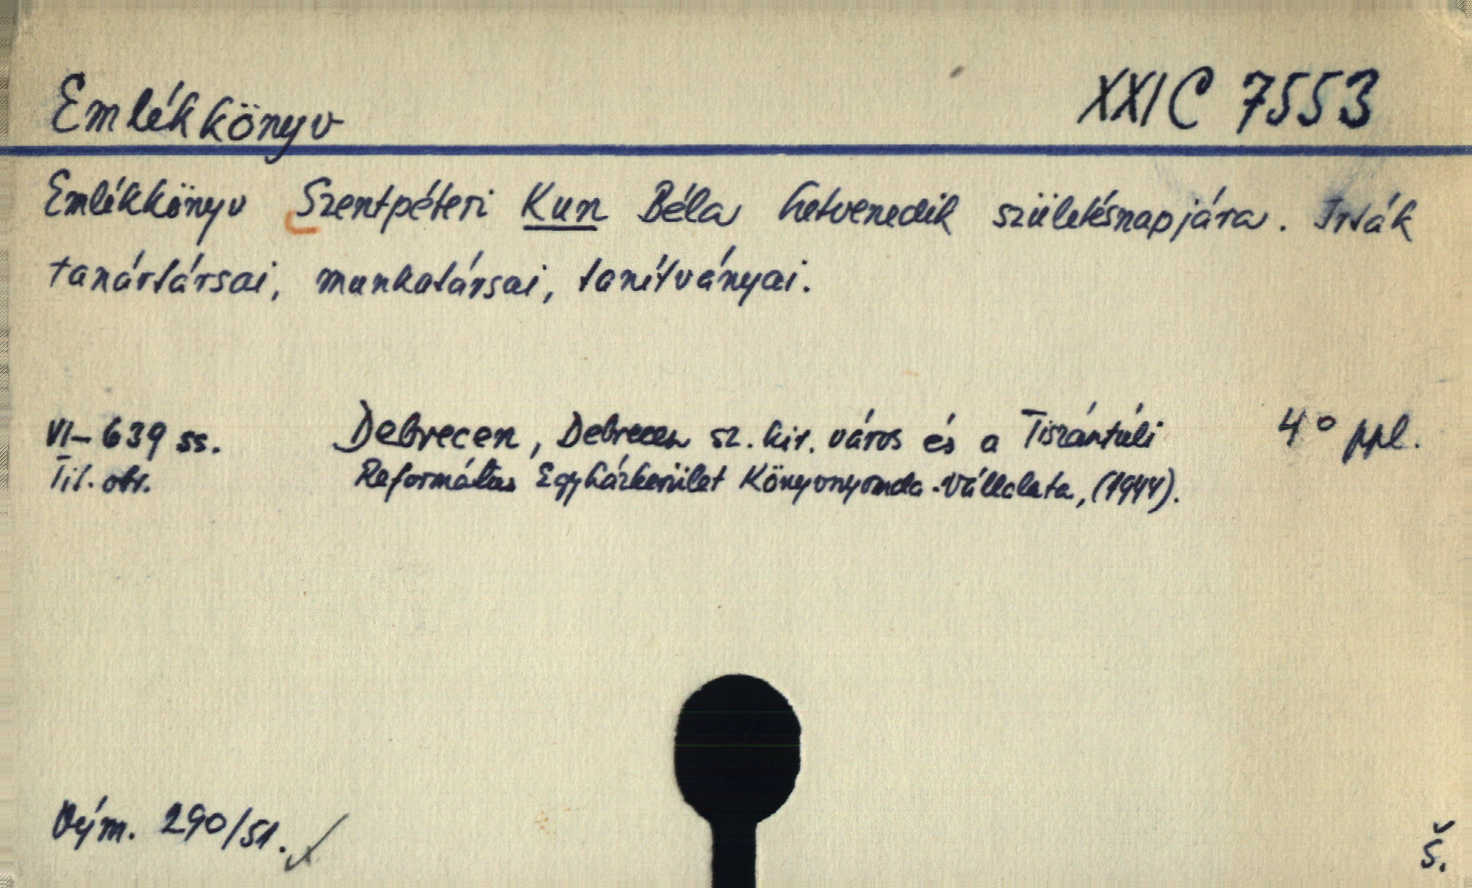 Emlékkönyv XXI C 7553
Emlékkönyv Szentpéteri Kun Béla hetvenedik születésnapjára. Irták
tanártársai, munkatársai, tanítványai.
VI-639 ss. Debrecen, Debrecen sz. kir. város és a Tiszántúli 4° ppl.
Til. obr. Református Egyházkerület Könyvnyomda-Vállalata, (1944).
Vým. 290/51.
Š.